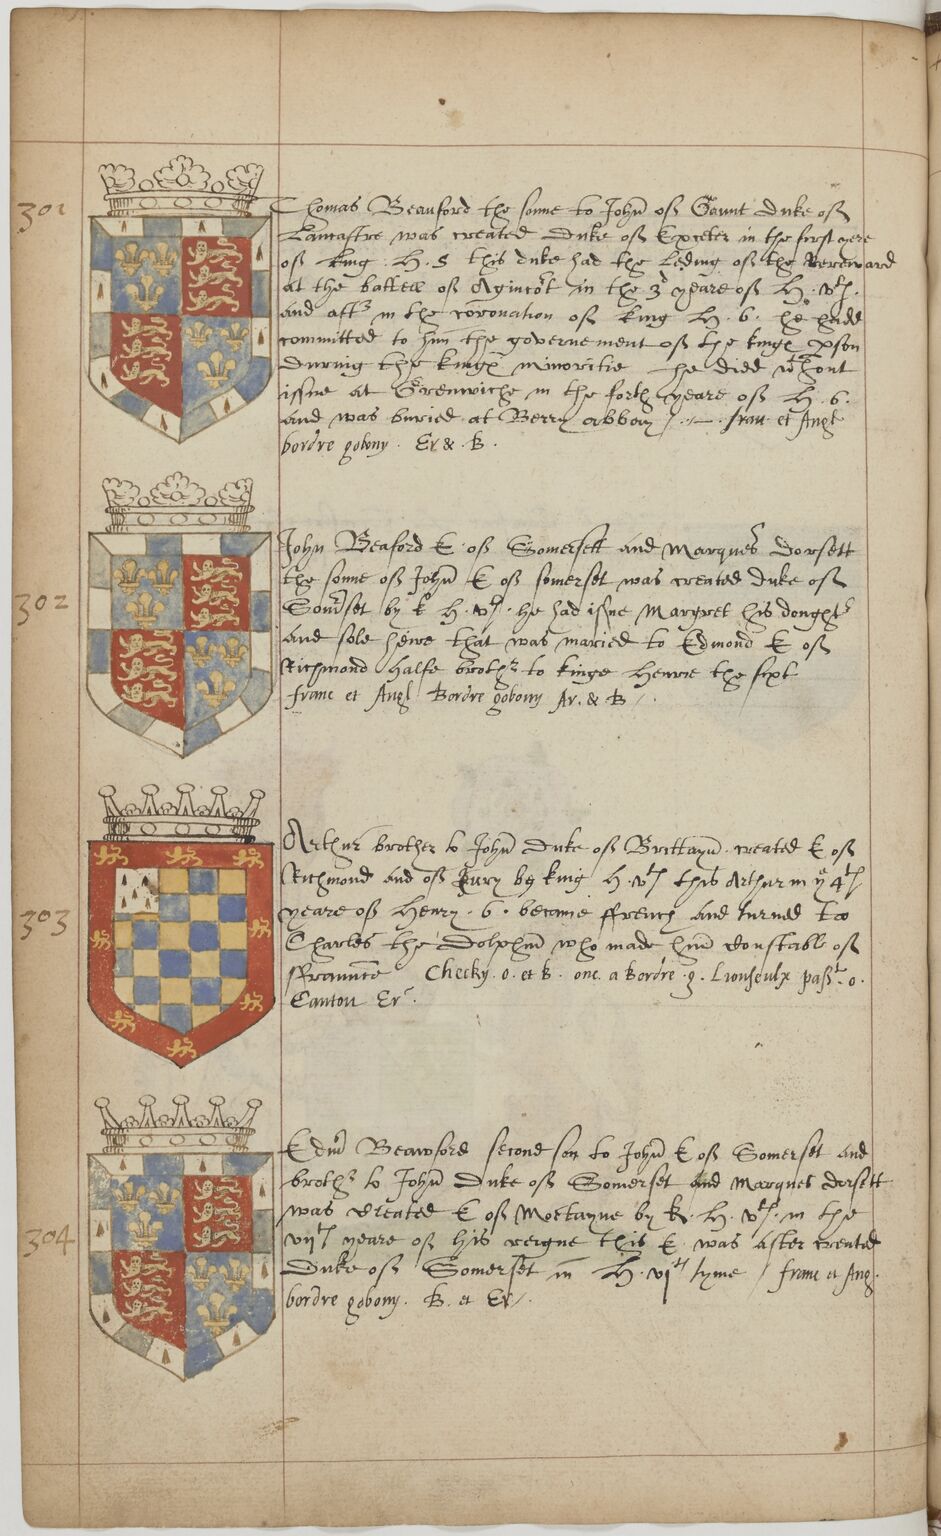 301
Thomas Beauford the sonne to John̄ off Gaunt Duke off
Lancastre was created Duke off Exceter in the first yere
off king . H . 5 this duke had the leding off the Rereward
at the battell off Agincort in the 3 yeare off H . vth .
and aftr in the coronation off king H . 6 . he hadd
committed to him the governement off the kinges pson
during the kinges minoritie he died wthout
issue at Grenwiche in the forth yeare off H . 6 .
and was buried at Berry abbay / . — . frau et Angl
bordre gobony . Er & . B .
302
John Beaford E . off Somersett and Marques dorsett
the sonne off John̄ E off somerset was created duke off
Somrset by k H . vth . he had issue Margret his doughtr
and sole heire that was maried to Edmond E off
Richmond halfe brothr to kinge Henrie the sixt
franc et Angl Bordre gobony Ar . & B /
303
Arthur brother to John̄ Duke off Brittayn̄ . created E off
Richmond and off Jury by king H . vth this Arthur in ye 4th
yeare off Henry . 6 . became ffrench and turned to
Charles the Dolphin̄ who made him constable off
ffraunce Checky . o . et B . one . a Bordre . g . Lionseulx pass . o .
Canton Er .
304
Edm̄ Beawford second son to John̄ E off Somerset and
brothr to John̄ Duke off Somerset and Marques dorsett
was created E off Moctayne by k . H . vth . in the
viith yeare off his reigne this E . was after created
Duke off Somerset in H . vith tyme / franc et Ang .
bordre gobony . B . et Er / .